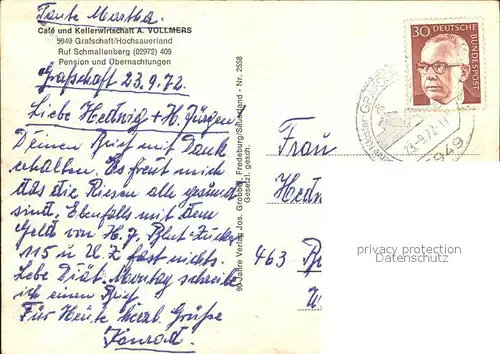 Tante Martha.
Café und Kellerwirtschaft A. VOLLMERS
5949 Grafschaft/Hochsauerland
Ruf Schmallenberg (02972) 409
Pension und Übernachtungen
Grafschaft 23.9.72.
Liebe Hedwig + H. Jürgen
Deinen Brief mit Dank
erhalten. Es freut mich
das die Riesen alle gesund
sind. Ebenfalls mit dem
Geld von H. J. Blut-Zucker
115 u U.Z fast nichts.
Lebe Diät. Montag schreibe
ich einen Brief
Für Heute herzl. Grüße
Konrad
90 Jahre Verlag Jos. Grobbel, Fredeburg/Sauerland - Nr. 2558
Gesetzl. gesch.
30 DEUTSCHE BUNDESPOST
23.-9.72.-11
5949
Frau
Hedw
463
privacy protection
Datenschutz